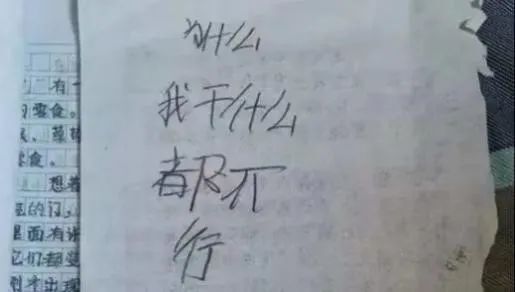 为什么
我干什么
都不
行
有一
零食。
零食。
想着
的门,
里面有
它们都